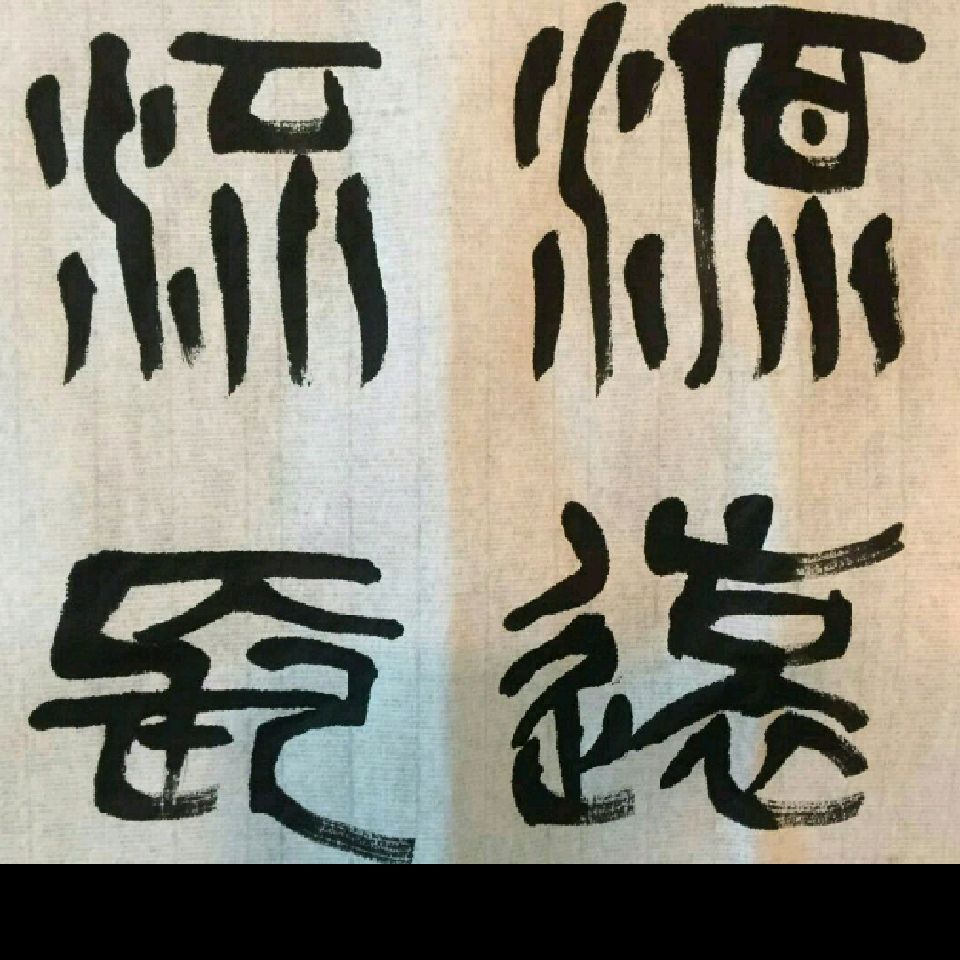 源遠
流長